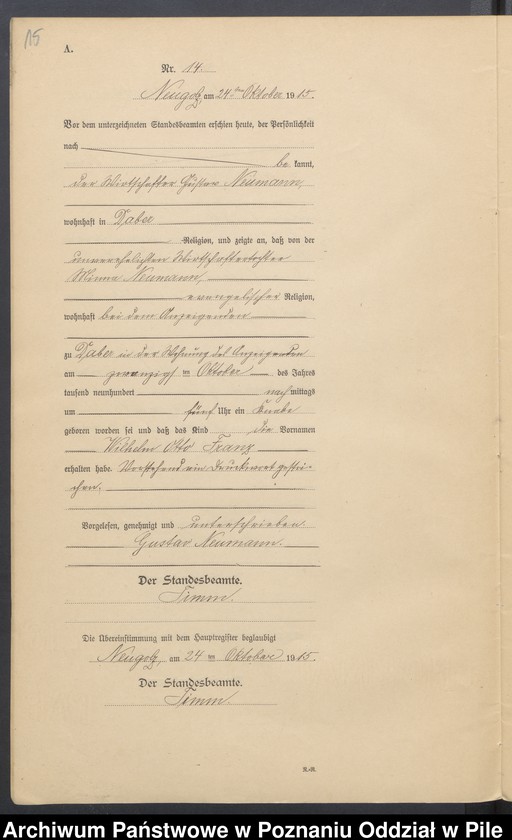 15
A.
Nr. 14.
Neugolz, am 24ten Oktober 1915.
Vor dem unterzeichneten Standesbeamten erschien heute, der Persönlichkeit
nach
bekannt,
der Wirtschafter Gustav Neumann,
wohnhaft in Daber
Religion, und zeigte an, daß von der
unverehelichten Wirtschaftertochter
Minna Neumann,
evangelischer Religion,
wohnhaft bei dem Anzeigenden
zu Daber in der Wohnung des Anzeigenden
am zwanzigsten Oktober des Jahres
tausend neunhundert nachmittags
um fünf Uhr ein Knabe
geboren worden sei und daß das Kind die Vornamen
Wilhelm Otto Franz
erhalten habe. Vorstehend ein Druckwort gestri-
chen.
Vorgelesen, genehmigt und unterschrieben
Gustav Neumann.
Der Standesbeamte.
Timm.
Die Übereinstimmung mit dem Hauptregister beglaubigt
Neugolz, am 24ten Oktober 1915.
Der Standesbeamte.
Timm.
R.-R.
Archiwum Państwowe w Poznaniu Oddział w Pile